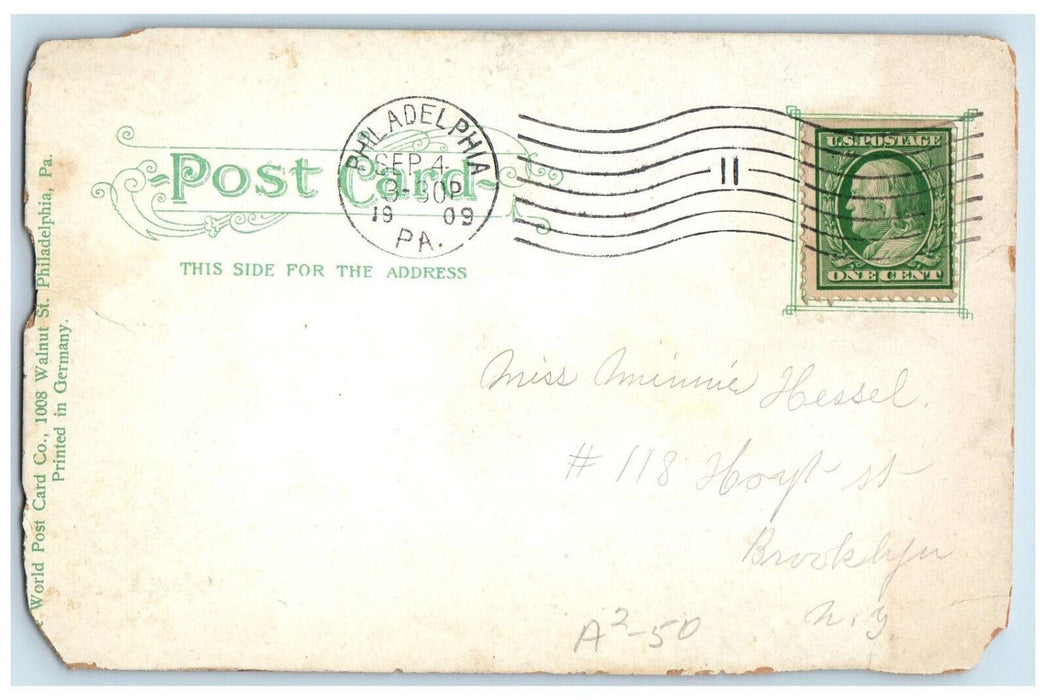 Post Card
THIS SIDE FOR THE ADDRESS
PHILADELPHIA
SEP 4
-30P
19 09
PA.
11
U.S. POSTAGE
ONE CENT
World Post Card Co., 1008 Walnut St. Philadelphia, Pa.
Printed in Germany.
Miss Minnie Hessel.
# 118 Hoyt st
Brooklyn
N.Y.
A2-50